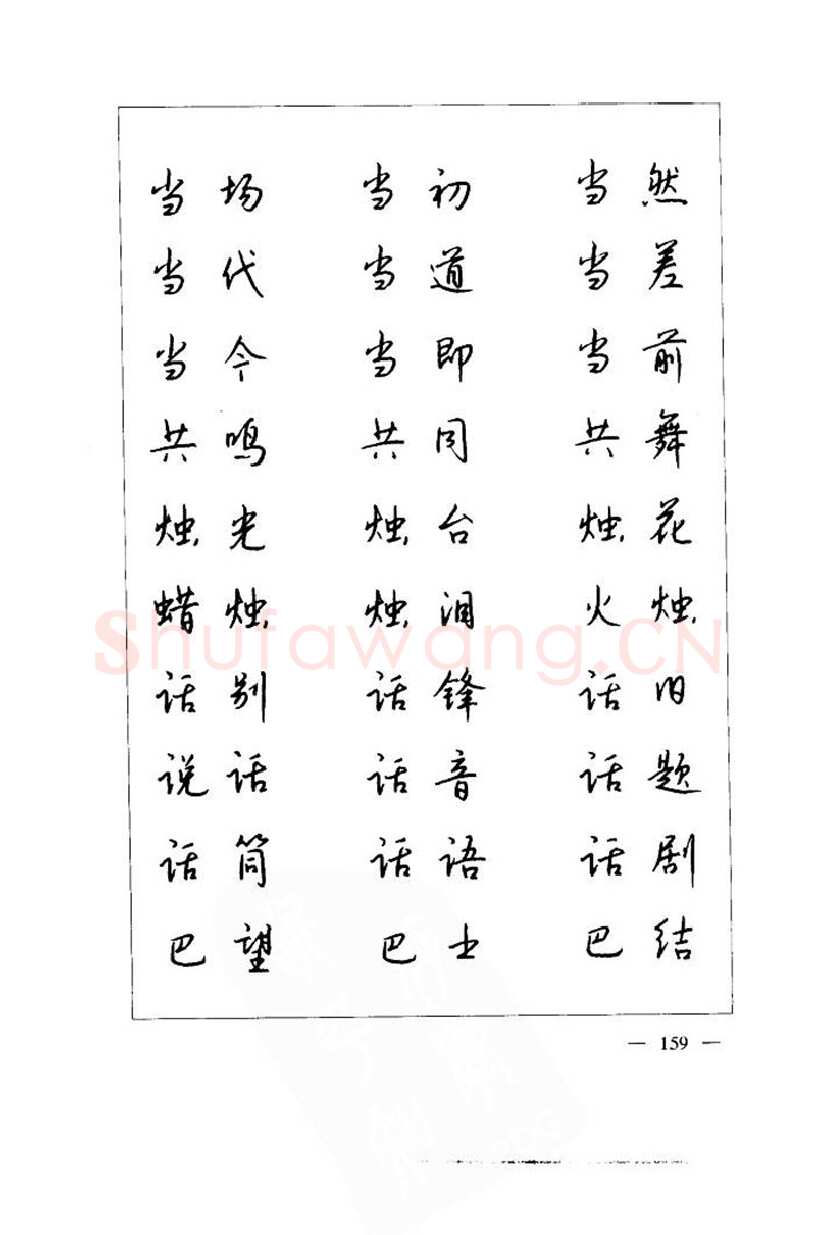 当场 当初 当然
当代 当道 当差
当今 当即 当前
共鸣 共同 共舞
烛光 烛台 烛花
蜡烛 烛泪 火烛
话别 话锋 话旧
说话 话音 话题
话筒 话语 话剧
巴望 巴士 巴结
Shufawang.CN
— 159 —